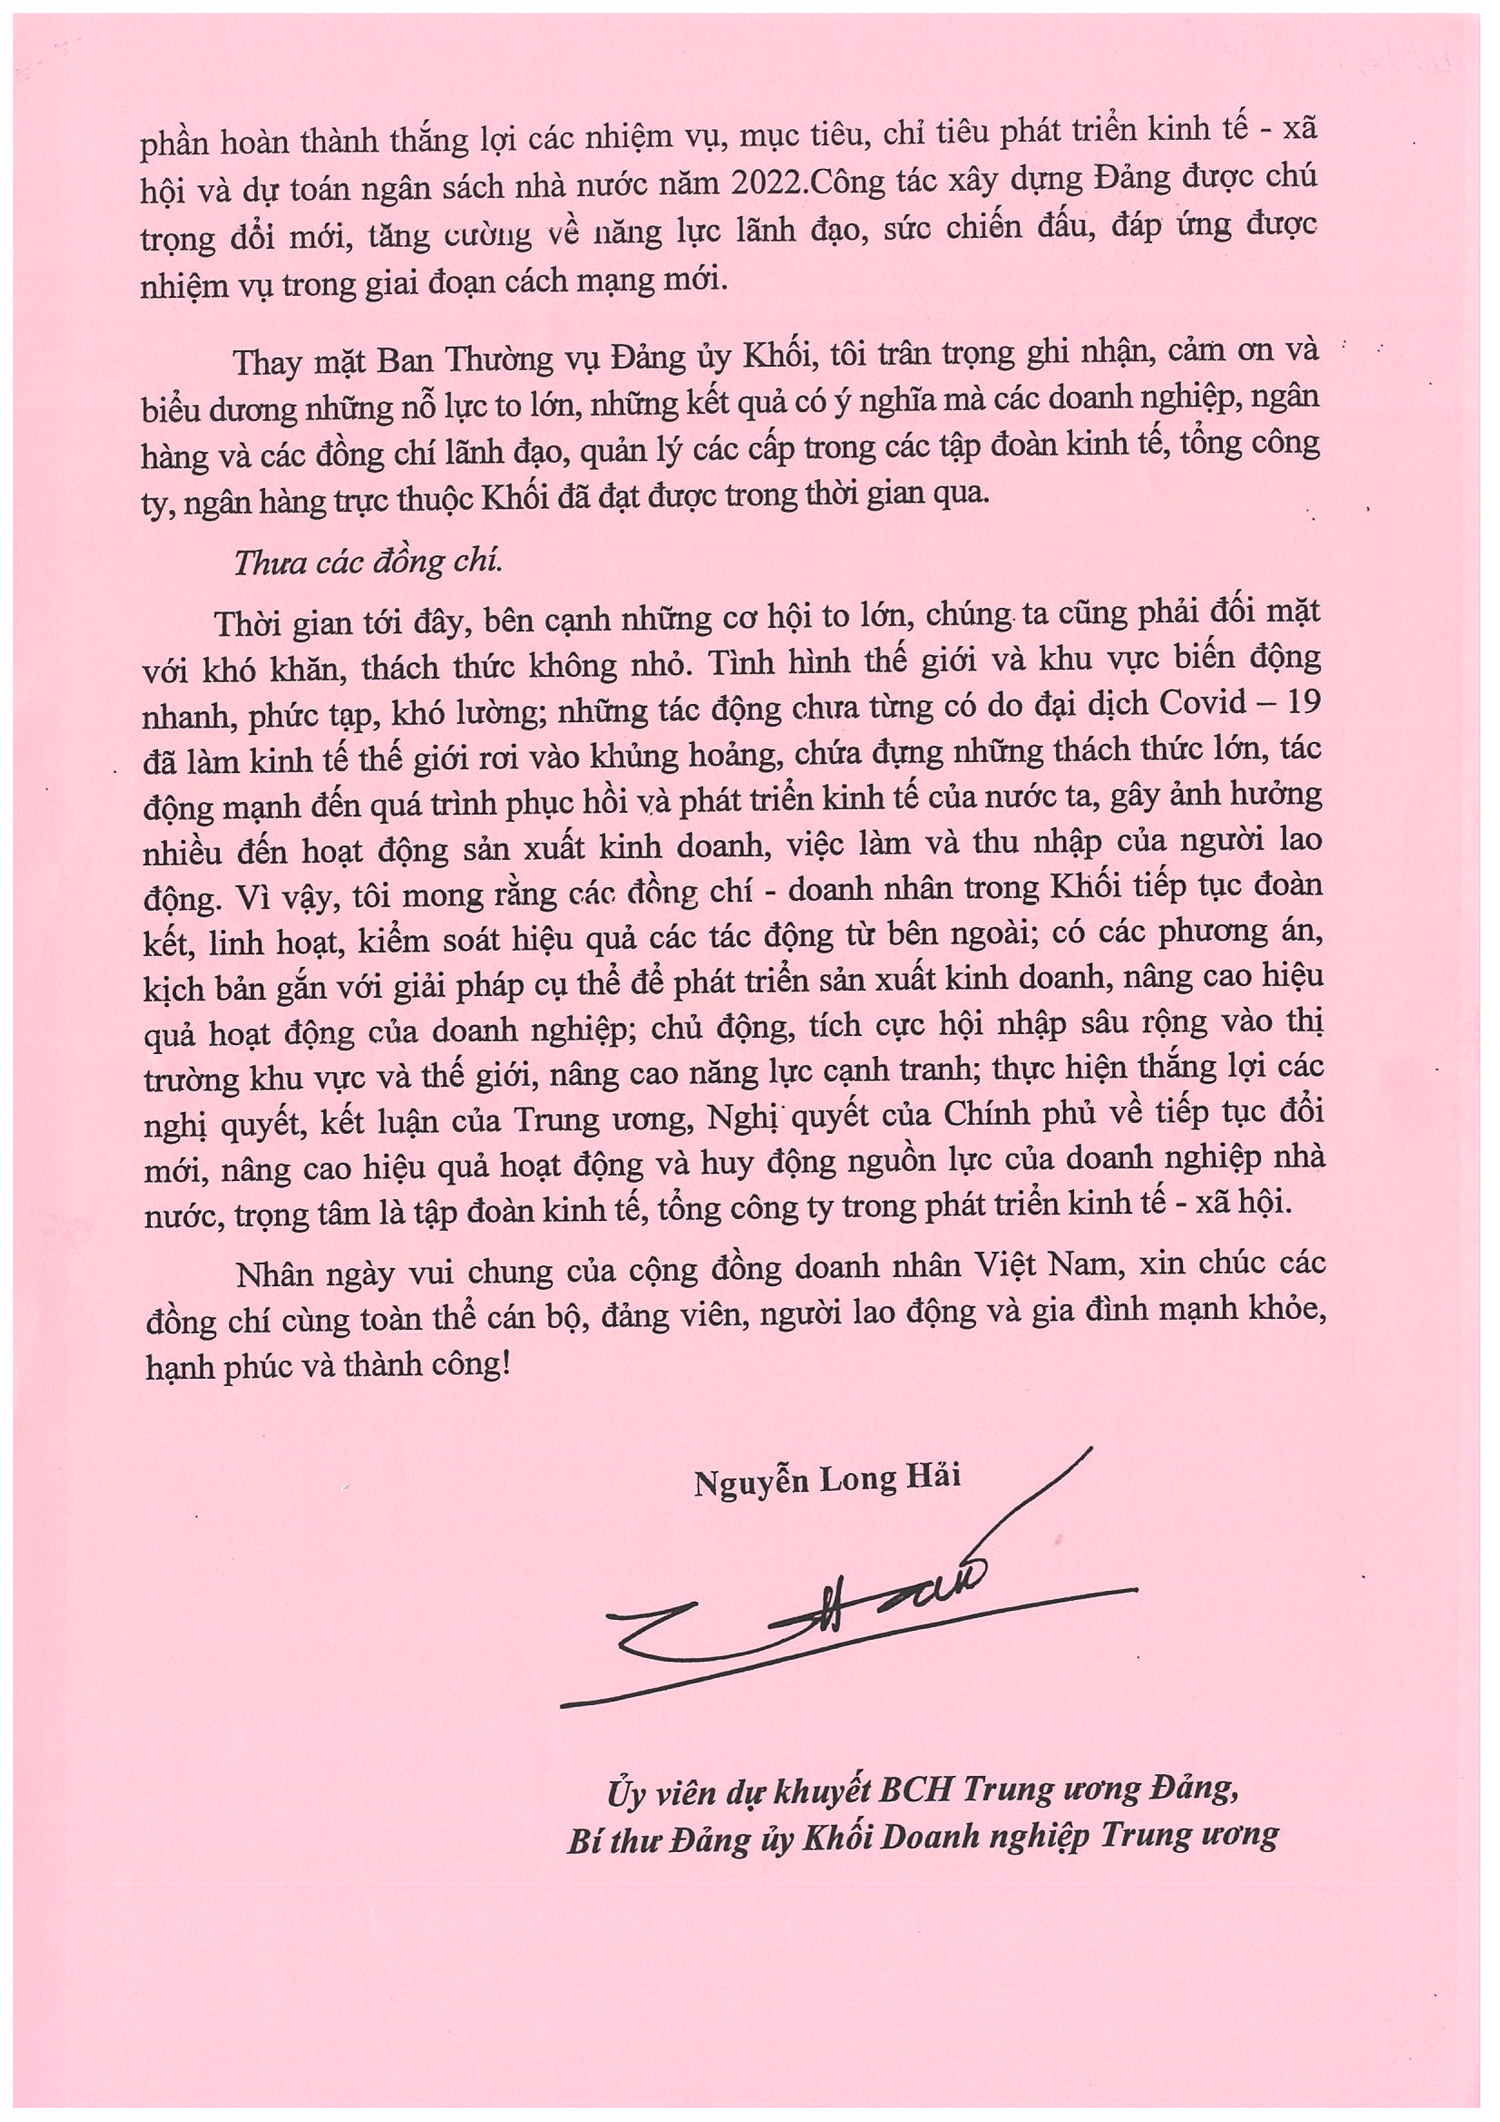 phần hoàn thành thắng lợi các nhiệm vụ, mục tiêu, chỉ tiêu phát triển kinh tế - xã
hội và dự toán ngân sách nhà nước năm 2022.Công tác xây dựng Đảng được chú
trọng đổi mới, tăng cường về năng lực lãnh đạo, sức chiến đấu, đáp ứng được
nhiệm vụ trong giai đoạn cách mạng mới.
Thay mặt Ban Thường vụ Đảng ủy Khối, tôi trân trọng ghi nhận, cảm ơn và
biểu dương những nỗ lực to lớn, những kết quả có ý nghĩa mà các doanh nghiệp, ngân
hàng và các đồng chí lãnh đạo, quản lý các cấp trong các tập đoàn kinh tế, tổng công
ty, ngân hàng trực thuộc Khối đã đạt được trong thời gian qua.
Thưa các đồng chí.
Thời gian tới đây, bên cạnh những cơ hội to lớn, chúng ta cũng phải đối mặt
với khó khăn, thách thức không nhỏ. Tình hình thế giới và khu vực biến động
nhanh, phức tạp, khó lường; những tác động chưa từng có do đại dịch Covid – 19
đã làm kinh tế thế giới rơi vào khủng hoảng, chứa đựng những thách thức lớn, tác
động mạnh đến quá trình phục hồi và phát triển kinh tế của nước ta, gây ảnh hưởng
nhiều đến hoạt động sản xuất kinh doanh, việc làm và thu nhập của người lao
động. Vì vậy, tôi mong rằng các đồng chí - doanh nhân trong Khối tiếp tục đoàn
kết, linh hoạt, kiểm soát hiệu quả các tác động từ bên ngoài; có các phương án,
kịch bản gắn với giải pháp cụ thể để phát triển sản xuất kinh doanh, nâng cao hiệu
quả hoạt động của doanh nghiệp; chủ động, tích cực hội nhập sâu rộng vào thị
trường khu vực và thế giới, nâng cao năng lực cạnh tranh; thực hiện thắng lợi các
nghị quyết, kết luận của Trung ương, Nghị quyết của Chính phủ về tiếp tục đổi
mới, nâng cao hiệu quả hoạt động và huy động nguồn lực của doanh nghiệp nhà
nước, trọng tâm là tập đoàn kinh tế, tổng công ty trong phát triển kinh tế - xã hội.
Nhân ngày vui chung của cộng đồng doanh nhân Việt Nam, xin chúc các
đồng chí cùng toàn thể cán bộ, đảng viên, người lao động và gia đình mạnh khỏe,
hạnh phúc và thành công!
Nguyễn Long Hải
Ủy viên dự khuyết BCH Trung ương Đảng,
Bí thư Đảng ủy Khối Doanh nghiệp Trung ương